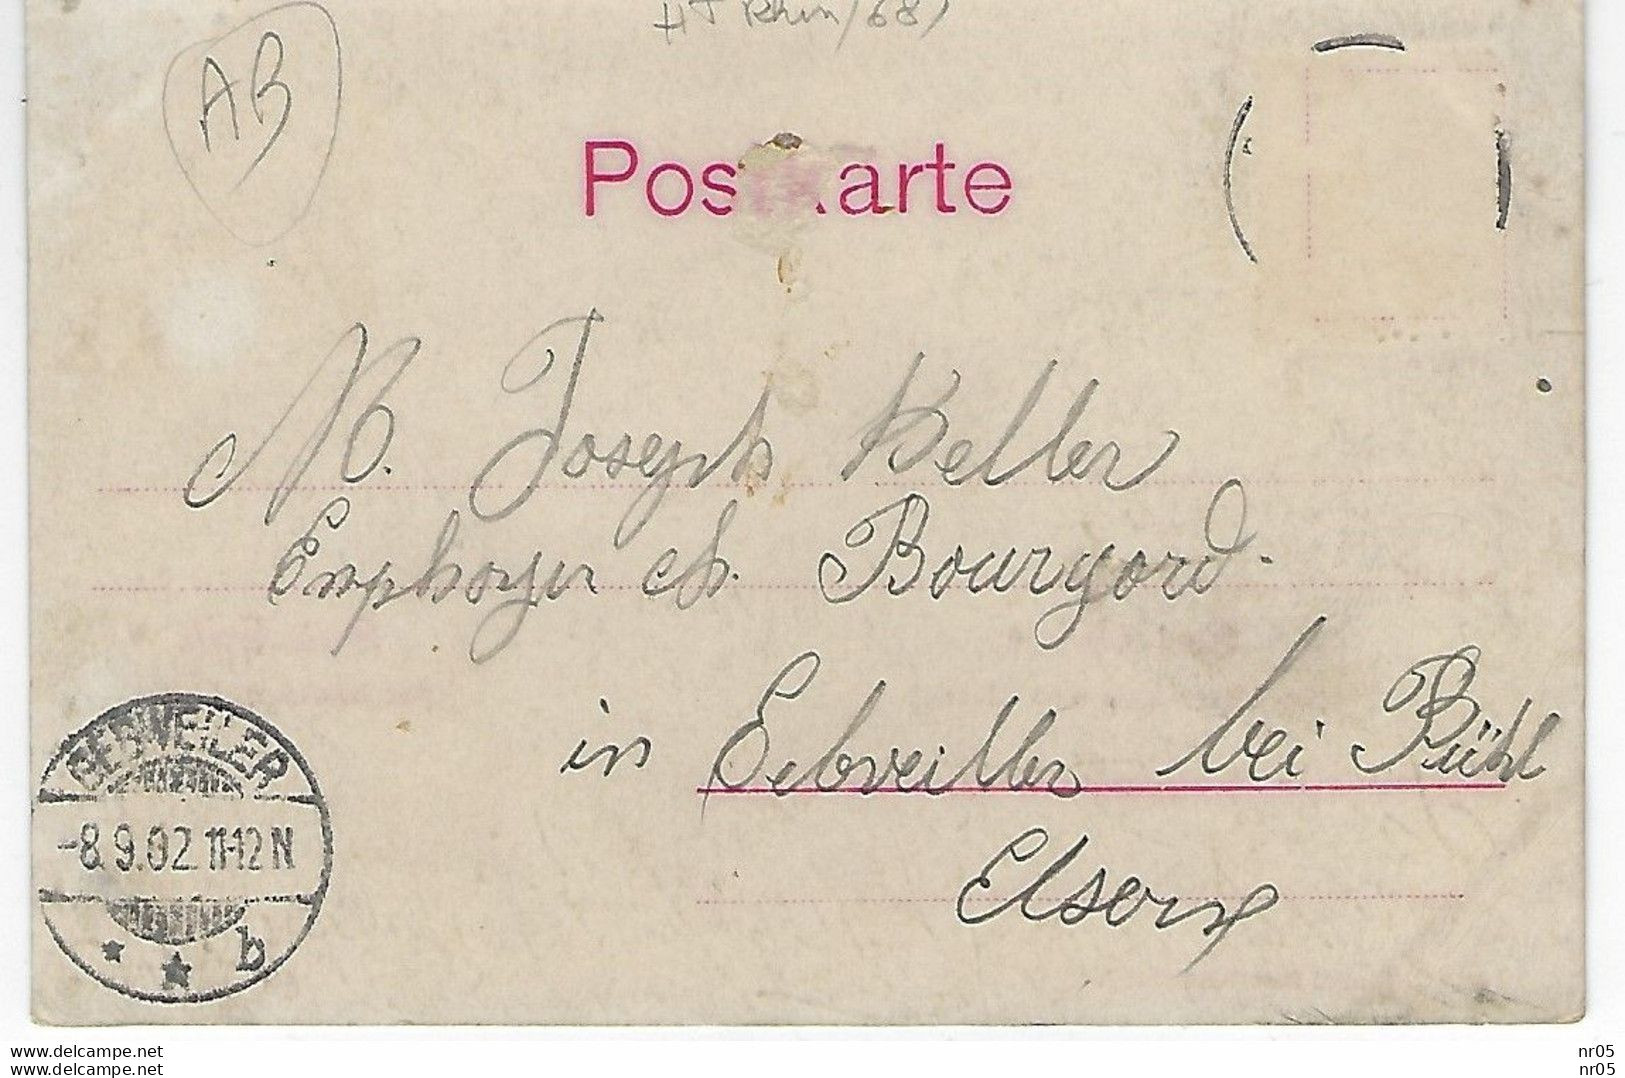 Ht Rhin (68)
AB
Postkarte
M. Joseph Keller
Employer ch. Bourgord.
in Gebveiller bei Bühl
Elsass
GEBWEILER
-8.9.02.11-12 N
b
www.delcampe.net
www.delcampe.net
nr05
nr05